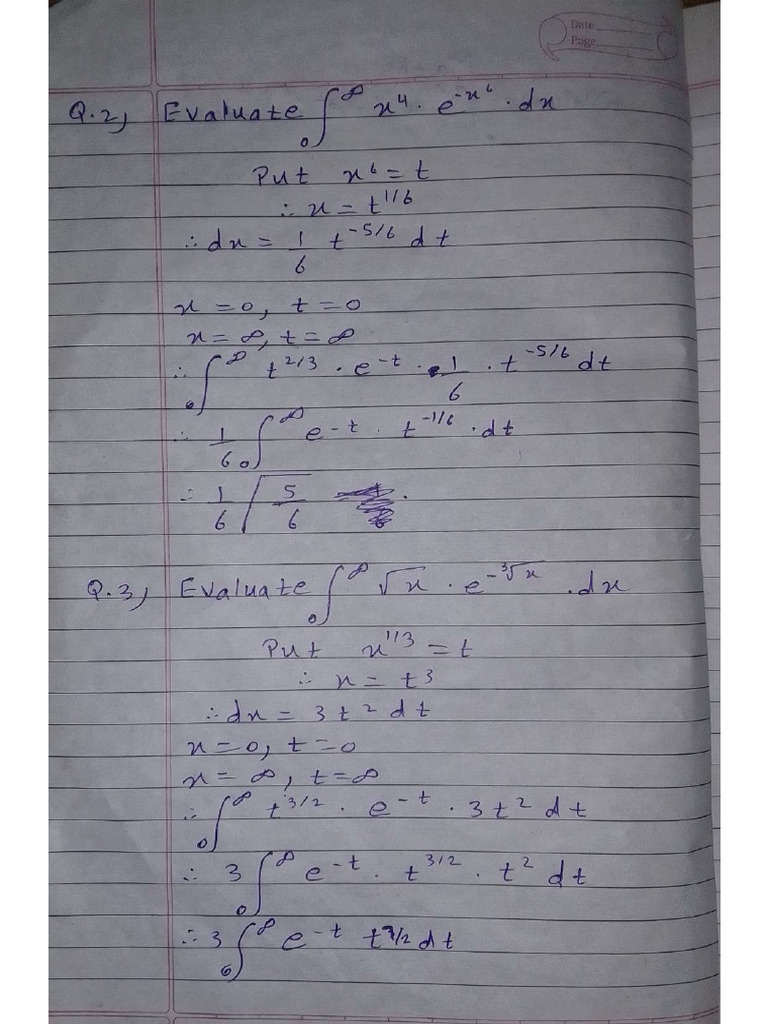 Date
Page
Q.2) Evaluate ∫₀^∞ x⁴ · e^(-x⁶) · dx
Put x⁶ = t
∴ x = t^(1/6)
∴ dx = 1/6 t^(-5/6) dt
x = 0, t = 0
x = ∞, t = ∞
∴ ∫₀^∞ t^(2/3) · e^(-t) · 1/6 · t^(-5/6) dt
∴ 1/6 ∫₀^∞ e^(-t) · t^(-1/6) · dt
∴ 1/6 Γ5/6
Q.3) Evaluate ∫₀^∞ √x · e^(-∛x) · dx
Put x^(1/3) = t
∴ x = t³
∴ dx = 3t² dt
x = 0, t = 0
x = ∞, t = ∞
∴ ∫₀^∞ t^(3/2) · e^(-t) · 3t² dt
∴ 3 ∫₀^∞ e^(-t) · t^(3/2) · t² dt
∴ 3 ∫₀^∞ e^(-t) t^(7/2) dt